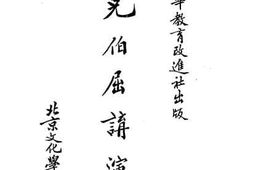 華教育改進社出版
克伯屈講演
北京文化學